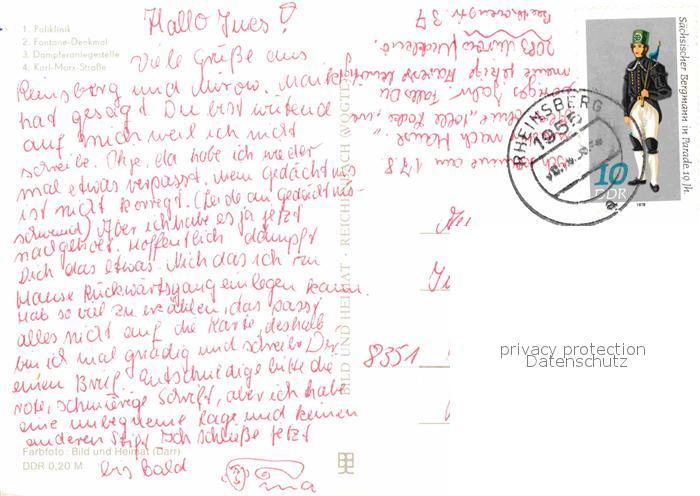 1. Poliklinik
2. Fontane-Denkmal
3. Dampferanlegestelle
4. Karl-Marx-Straße
Hallo Ines!
Viele Grüße aus
Reinsberg und Mirow.
hat gesagt Du bist wütend
auf mich weil ich nicht
schreibe. Ohje, da habe ich wieder
mal etwas verpasst, wenn Gedächtnis
ist nicht korregt. (Leide an Gedächtnis-
schwund) Aber ich habe es ja jetzt
nachgeholt. Hoffentlich dämpft
Dich das etwas. Nich das ich zu
Hause Rückwärtsgang einlegen kann.
Hab so viel zu erzählen, das passt
alles nicht auf die Karte, deshalb
bin ich mal gnädig und schreibe Dir
einen Brief. Entschuldige bitte die
rote, schmierige Schrift, aber ich habe
eine unbequeme Lage und keinen
anderen Stift. Ich schließe jetzt
bis Bald
Farbfoto: Bild und Heimat (Darr)
DDR 0,20 M
BILD UND HEIMAT · REICHENBACH (VOGTL)
komme am 17.8
nach Hause
falls Du
8351
Sächsischer Bergmann in Parade, 19. Jh.
10
DDR
1978
RHEINSBERG
1955
a
privacy protection
Datenschutz